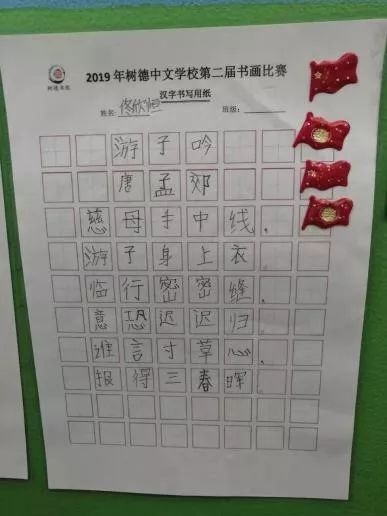 树德书院
2019 年树德中文学校第二届书画比赛
汉字书写用纸
姓名: 佟欣恒 班级:
游子吟
唐孟郊
慈母手中线,
游子身上衣
临行密密缝,
意恐迟迟归
谁言寸草心,
报得三春晖